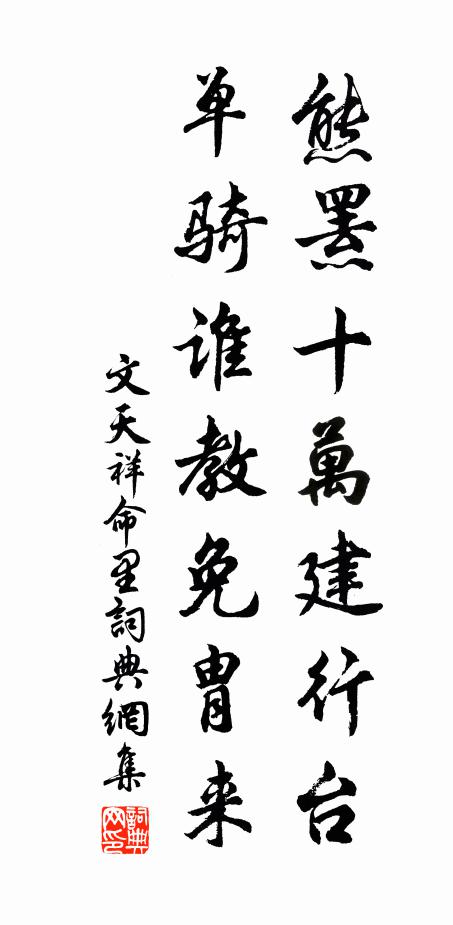 熊罴十萬建行台
单骑谁教免胄来
文天祥命里詞典網集
詞典网印